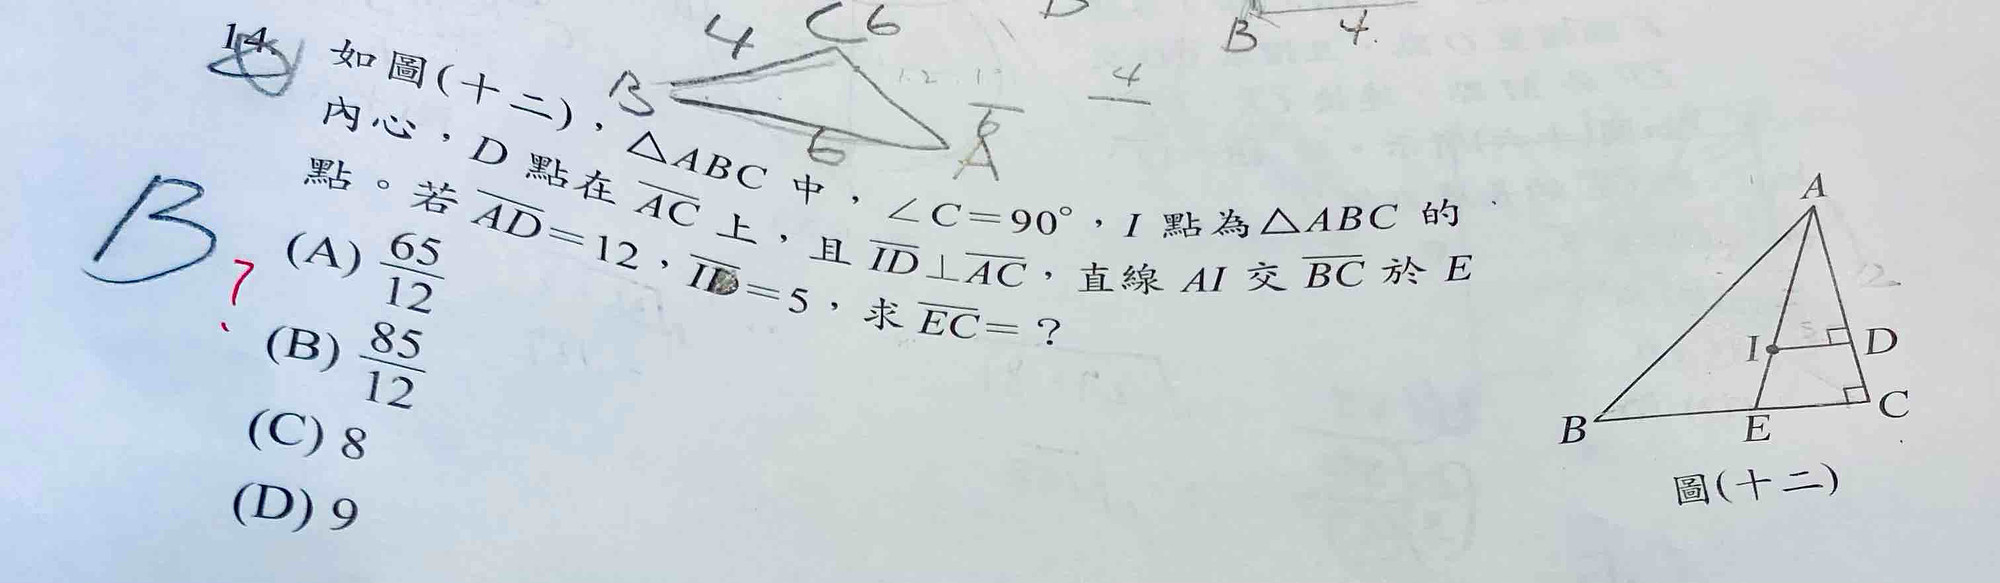 14. 如圖(十二)，△ABC 中，∠C=90°，I 點為△ABC 的
內心，D 點在 AC 上，且 ID⊥AC，直線 AI 交 BC 於 E
點。若 AD=12，ID=5，求 EC=？
(A) 65/12
(B) 85/12
(C) 8
(D) 9
B
?
4
C 6
B
6
A
6
4
B
4.
A
I
D
B
E
C
圖(十二)